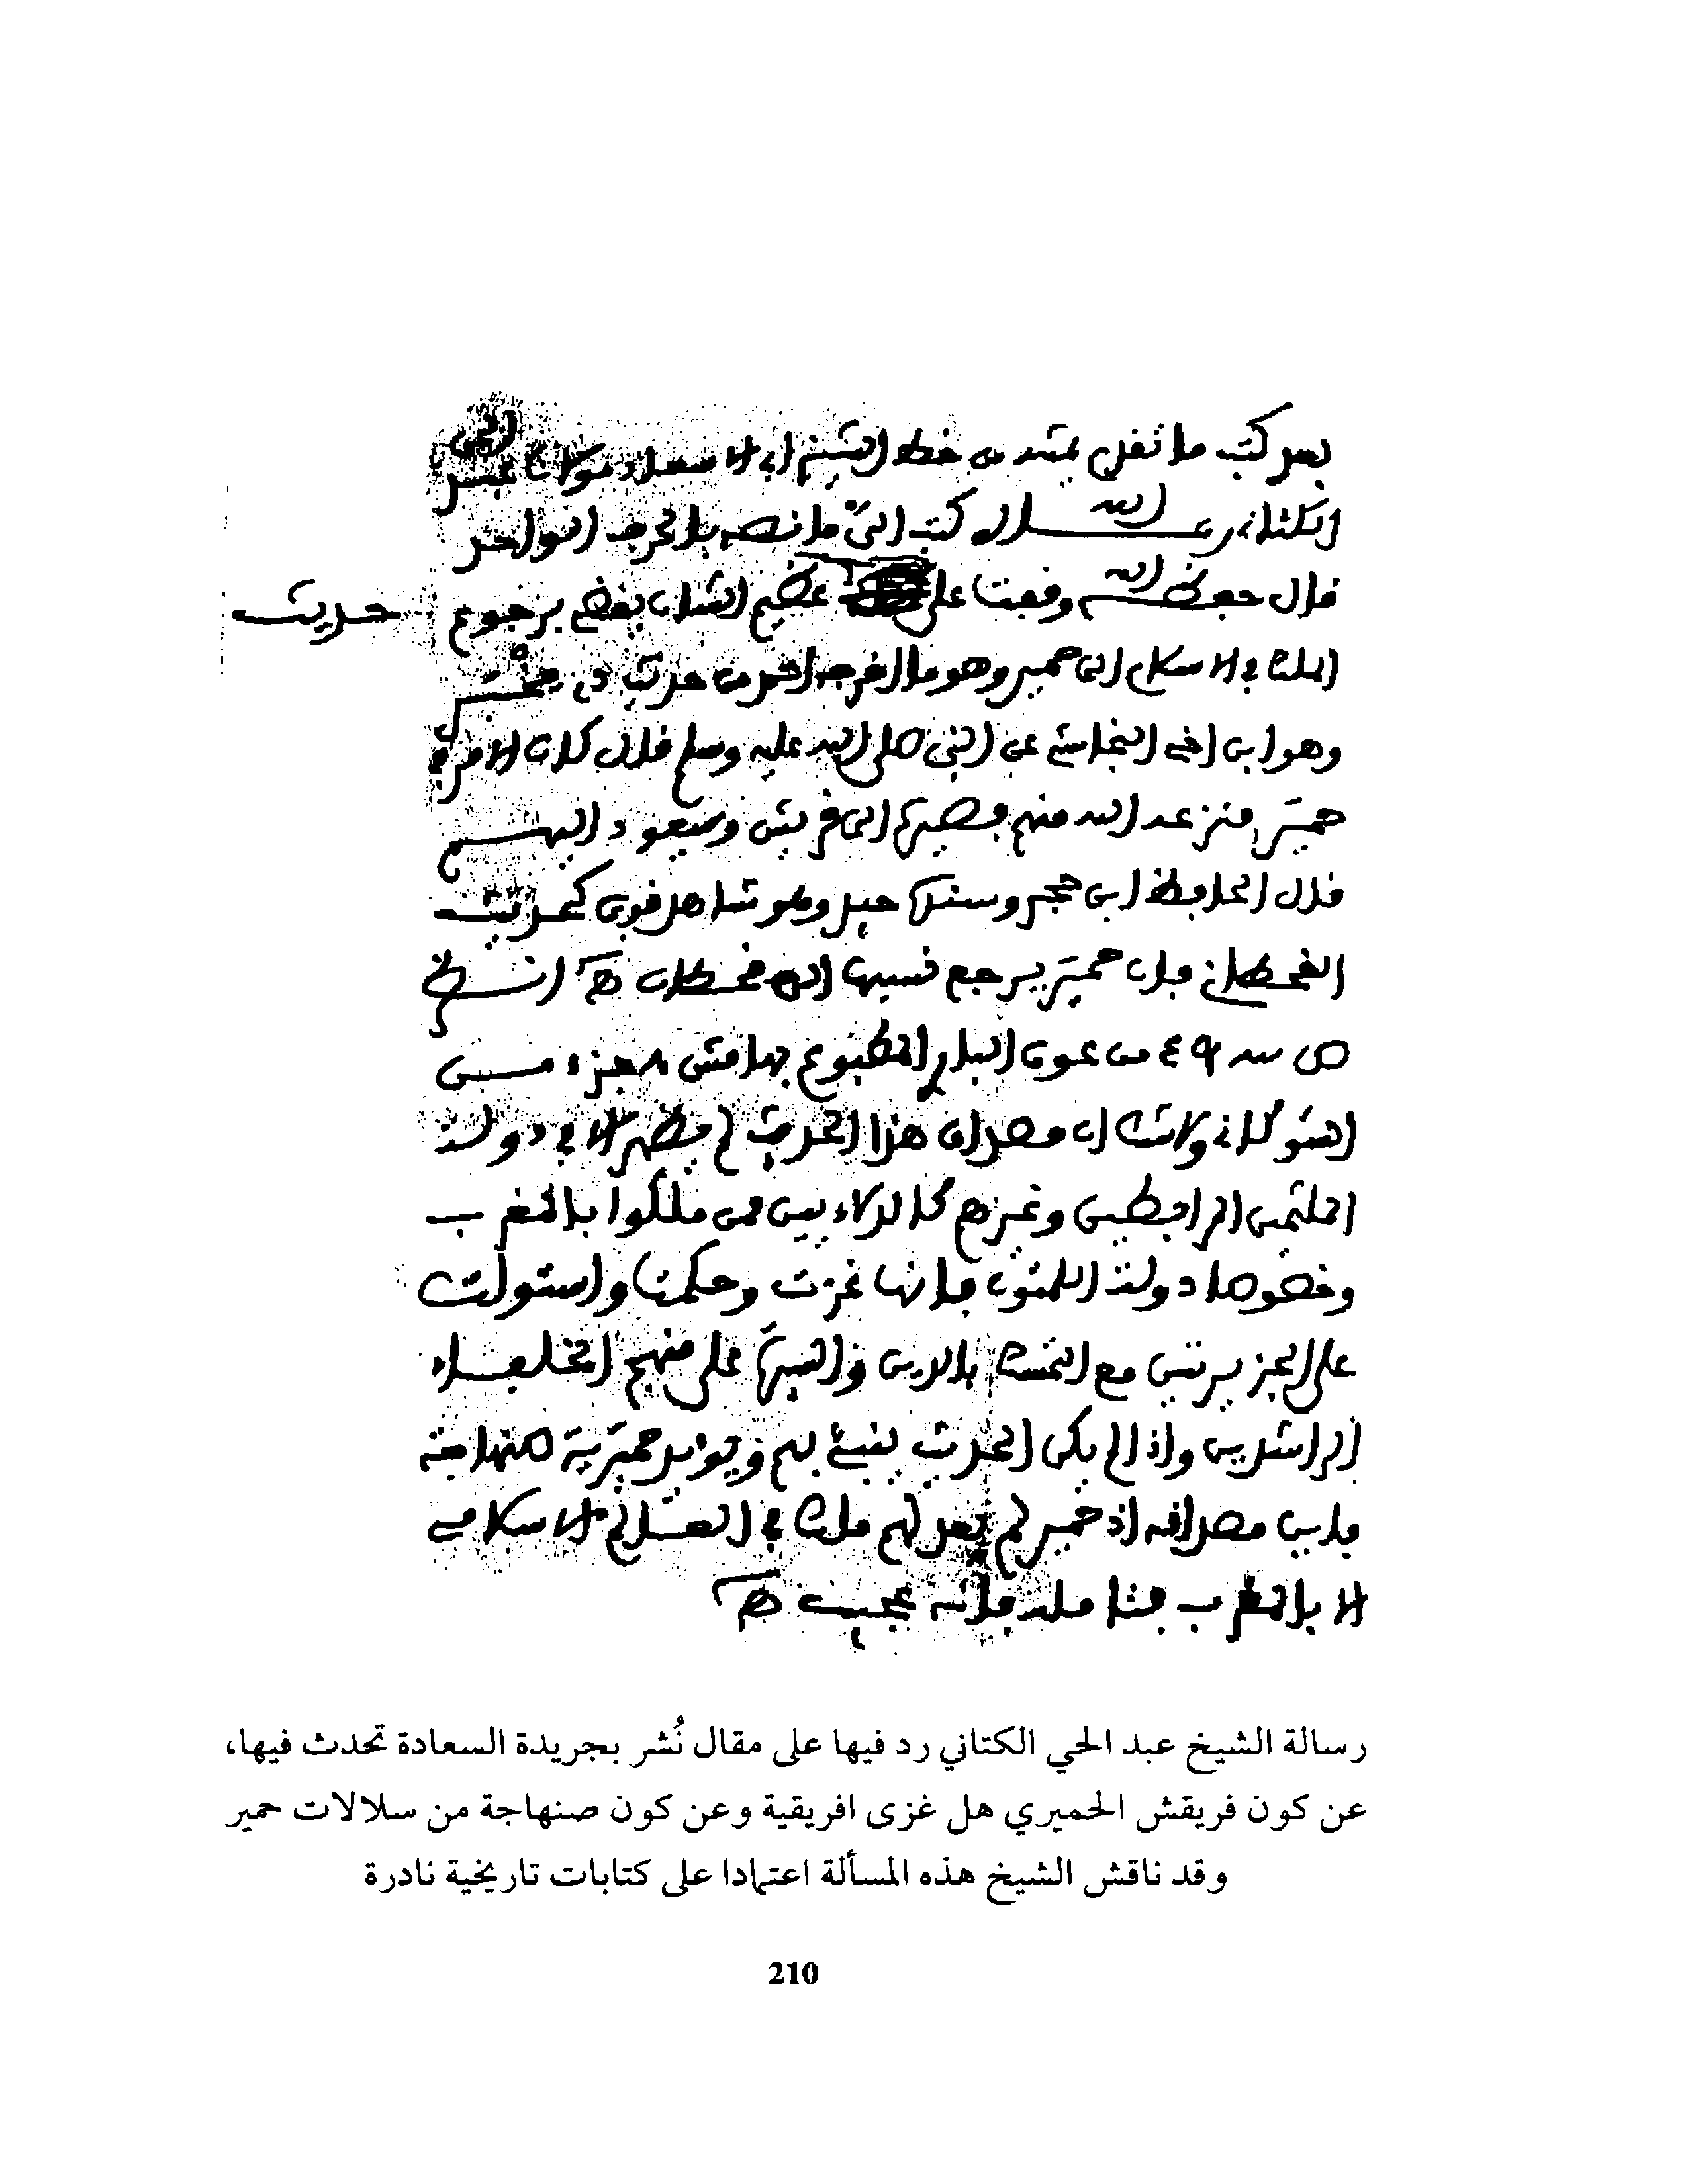 بعد كتب ما نقل بمتنه من خط الشيخ أبي الاسعاد مولانا عبد الحي
الكتاني رعـ الله قال كتب الي ما نصه بالحرف الواحد
قال حفظـه الله وقفت على عظيم الشان يقضي برجوع حديث
الملك في الاسلام الى حمير وهو ما اخرجه احمد من حديث ذي مخمر
وهو ابن اخي النجاشي عن النبي صلى الله عليه وسلم قال كان الامر في
حمير فنزعه الله منهم فصيره الى قريش وسيعود اليهم
قال الحافظ ابن حجر وسنده جيد وهو شاهد قوي لحديث
القحطاني فان حمير يرجع نسبها الى قحطان هـ انتهى
ص من عون الباري المطبوع بهامش الجزء من
الشوكاني ولا شك ان مصداق هذا الحديث لم يظهر الا في دولة
الملثمين المرابطين وغيرهم كالدلاءيين ممن ملكوا بالمغرب
وخصوصا دولة اللمتون فانها غزت وحكمت واستولت
على الجزيرتين مع التمسك بالدين والسير على منهج الخلفاء
الراشدين واذا لم يكن الحديث ينبئ بهم ويؤيد حميرية صنهاجة
فاين مصداقه اذ حمير لم يعد لهم ملك في العالم الاسلامي
الا بالمغرب فتامله فانه عجيب هـ
رسالة الشيخ عبد الحي الكتاني رد فيها على مقال نُشر بجريدة السعادة تحدث فيها،
عن كون فريقش الحميري هل غزى افريقية وعن كون صنهاجة من سلالات حمير
وقد ناقش الشيخ هذه المسألة اعتمادا على كتابات تاريخية نادرة
210